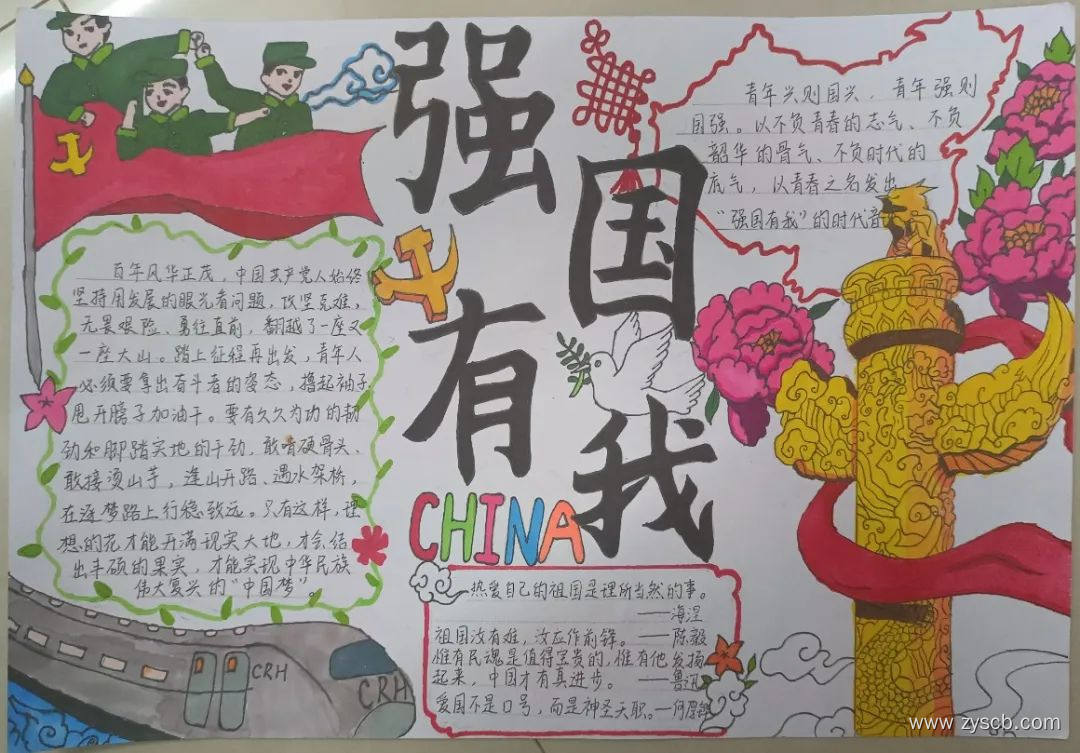 强国有我
青年兴则国兴，青年强则
国强。以不负青春的志气、不负
韶华的骨气、不负时代的
底气，以青春之名发出
“强国有我”的时代音
百年风华正茂，中国共产党人始终
坚持用发展的眼光看问题，攻坚克难，
无畏艰险、勇往直前，翻越了一座又
一座大山。踏上征程再出发，青年人
必须要拿出奋斗者的姿态，撸起袖子
甩开膀子加油干。要有久久为功的韧
劲和脚踏实地的干劲，敢啃硬骨头、
敢接烫山芋，逢山开路、遇水架桥，
在逐梦路上行稳致远。只有这样，理
想的花才能开满现实大地，才会结
出丰硕的果实，才能实现中华民族
伟大复兴的“中国梦”。
CHINA
热爱自己的祖国是理所当然的事。
——海涅
祖国没有难，汝应作前锋。——陈毅
惟有民魂是值得宝贵的，惟有他发扬
起来，中国才有真进步。——鲁迅
爱国不是口号，而是神圣天职。—何厚铧
CRH
CRH
www.zyscb.com